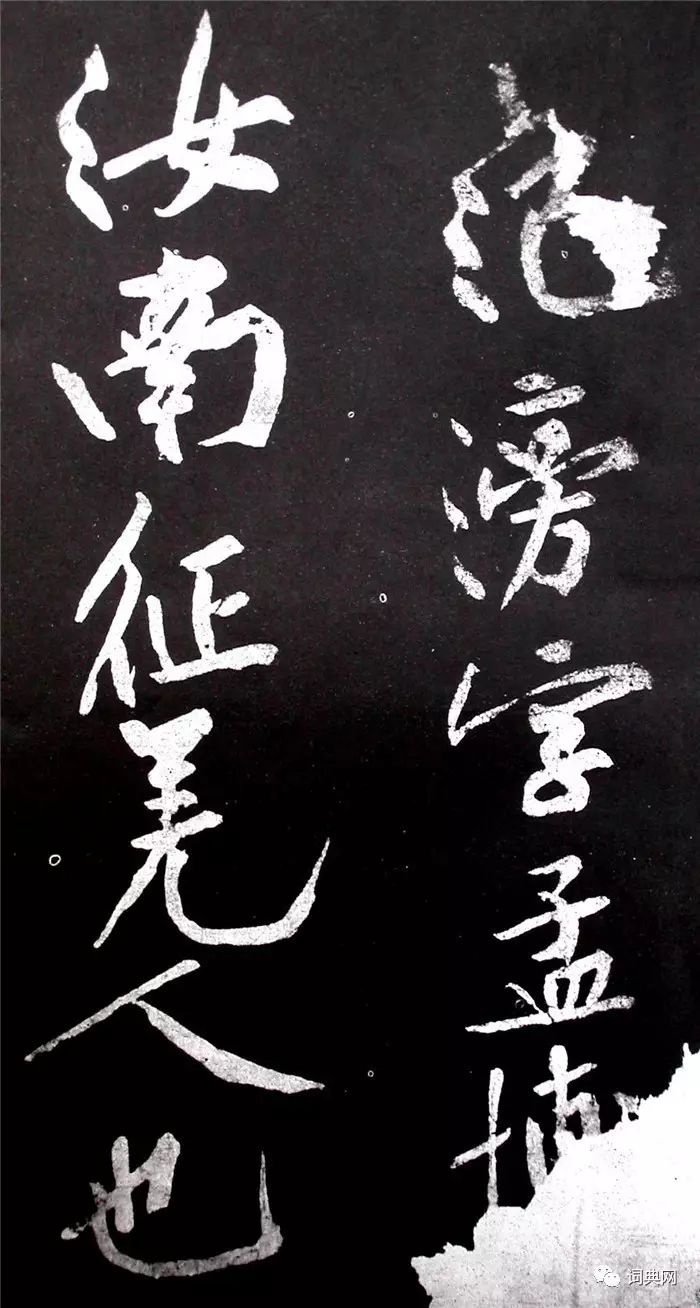 范滂字孟博
汝南征羌人也
词典网